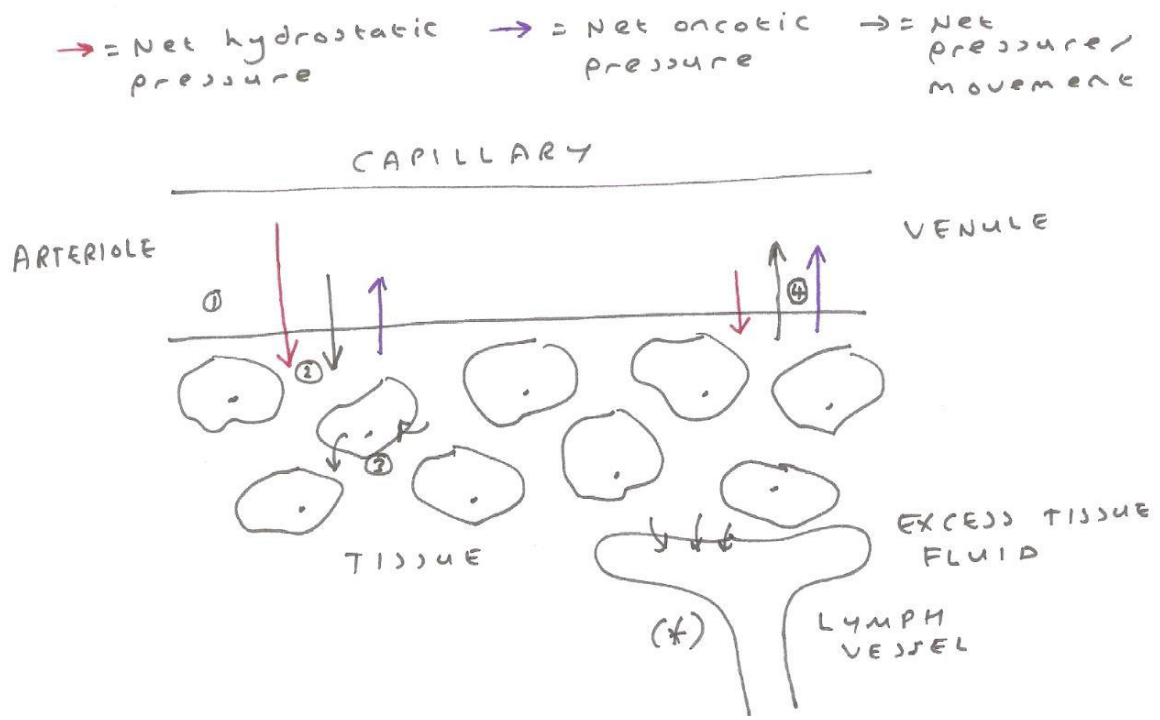 → = Net hydrostatic pressure
→ = Net oncotic pressure
→ = Net pressure/movement
CAPILLARY
ARTERIOLE
VENULE
①
④
②
③
TISSUE
EXCESS TISSUE
FLUID
(*)
LYMPH
VESSEL